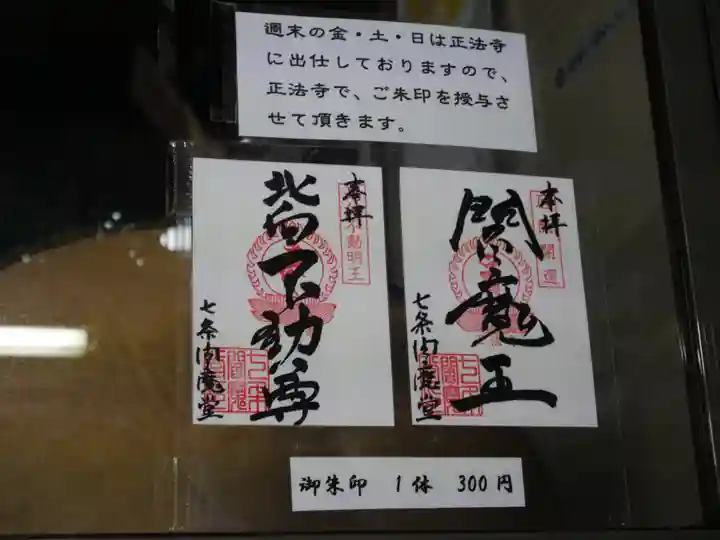 週末の金・土・日は正法寺
に出仕しておりますので、
正法寺で、ご朱印を授与さ
せて頂きます。
本拝
開運
閻魔王
七条閻魔堂
奉拝
不動明王
北向不動尊
七条閻魔堂
御朱印 1体 300円